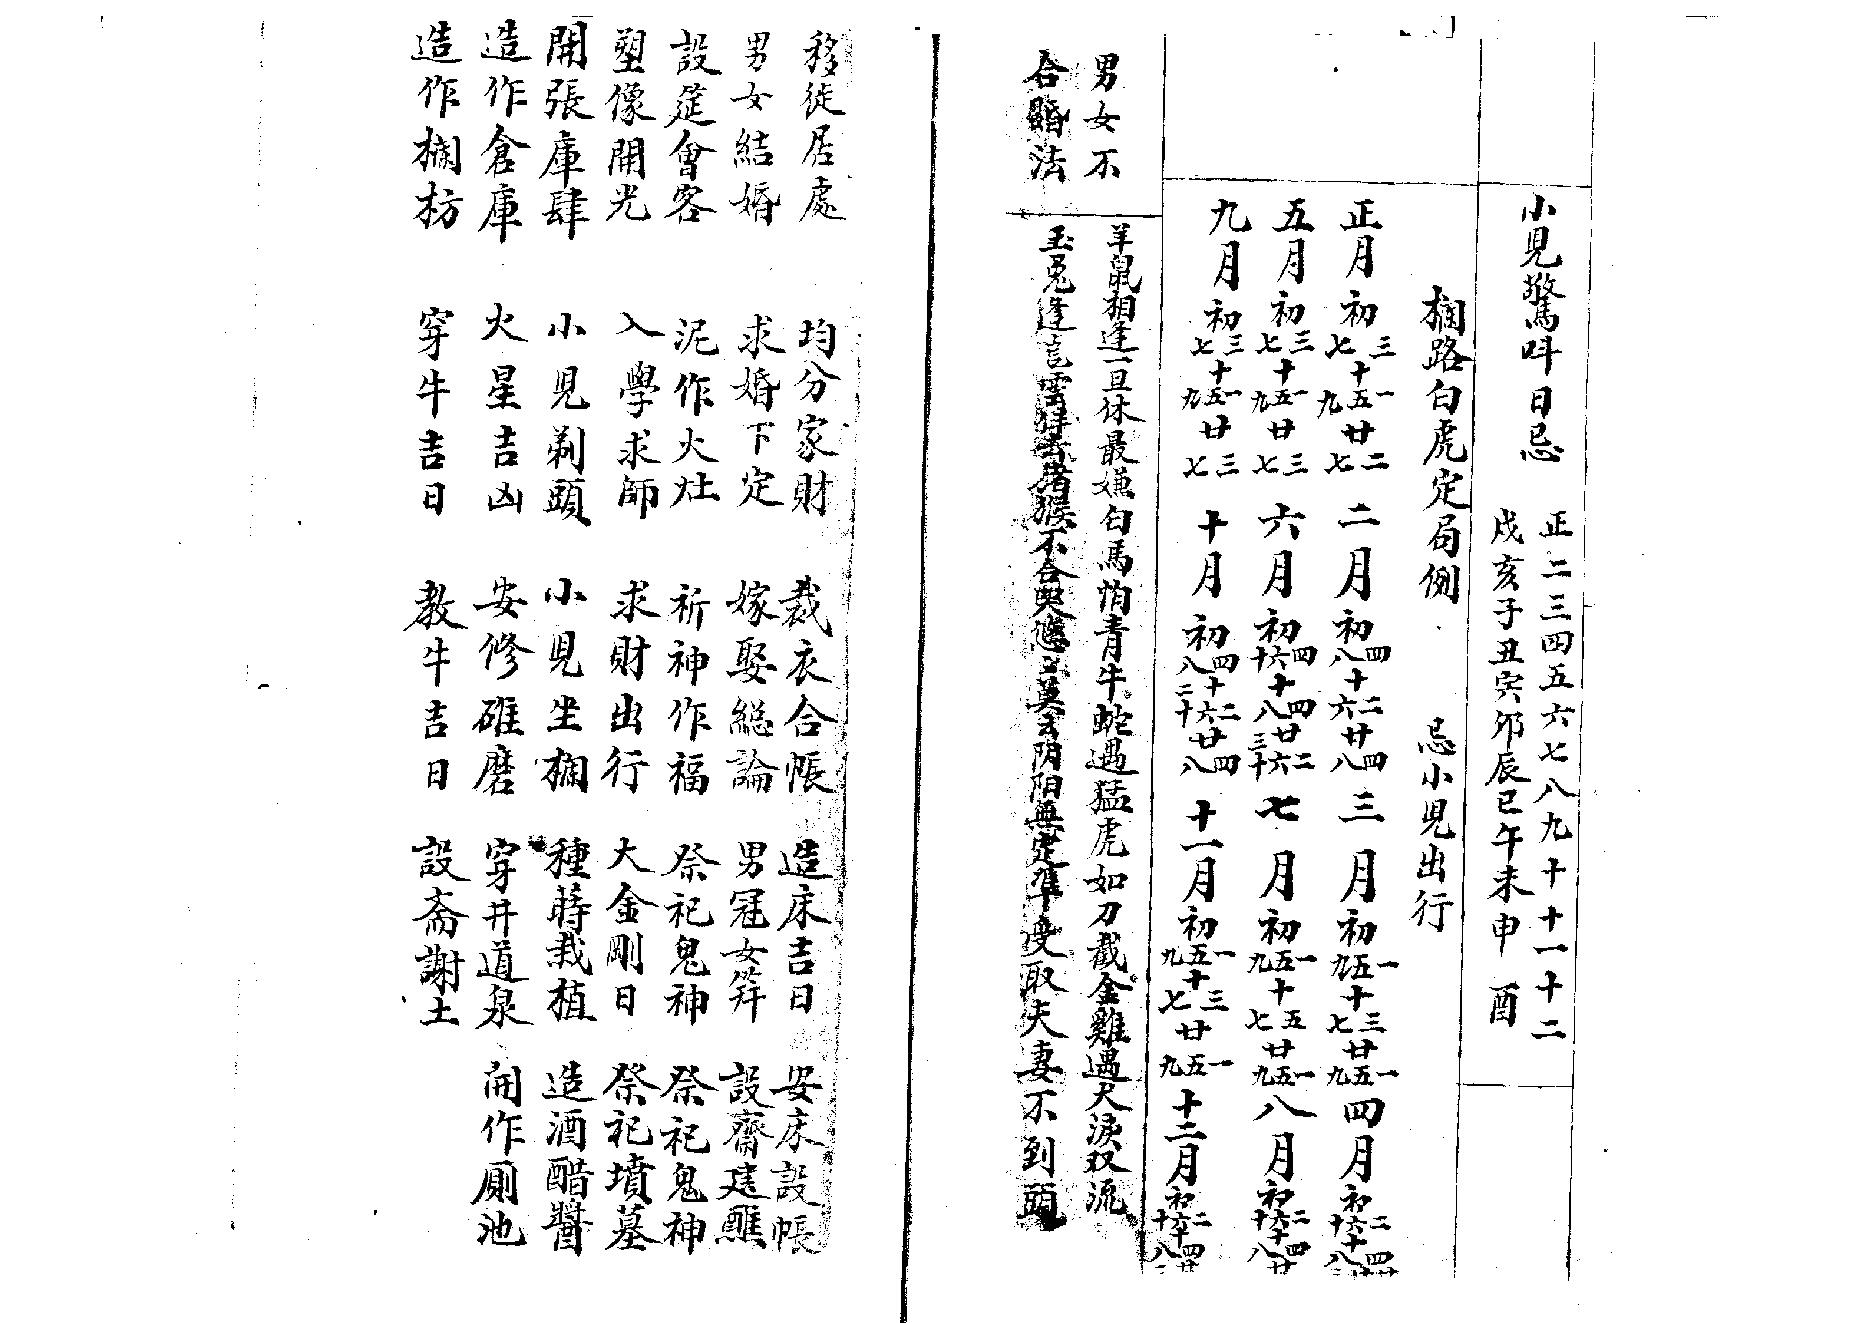 小児驚呌日忌
正二三四五六七八九十十一十二
戌亥子丑寅卯辰巳午未申酉
欄路白虎定局例 忌小児出行
正月初三七十一五九廿二七
二月初四八十二六廿四八
三月初一五九十三七廿一五九
四月初二六十十四八
五月初三七十一五九廿三七
六月初四六十十四八廿二六三十
七月初一五九十五七廿一五九
八月初二六十十四八廿
九月初三七十一五九廿三七
十月初四八十二六二十廿四八
十一月初一五九十三七廿一五九
十二月初二六十十四八廿
男女不
合婚法
羊鼠相逢一旦休最嫌白馬怕青牛蛇遇猛虎如刀截金雞遇犬淚双流
玉兔逢龍雲猪猴不合莫云阴阳無定準受取夫妻不到頭
移徙居處 均分家財 裁衣合帳 造床吉日 安床設帳
男女結婚 求婚下定 嫁娶總論 男冠女筓 設齋建醮
設筵會客 泥作火灶 祈神作福 祭祀鬼神 祭祀鬼神
塑像開光 入學求師 求財出行 大金剛日 祭祀墳墓
開張庫肆 小児剃頭 小児坐欄 種蒔栽植 造酒醋醬
造作倉庫 火星吉凶 安修碓磨 穿井道泉 開作厠池
造作欄枋 穿牛吉日 教牛吉日 設斋謝土